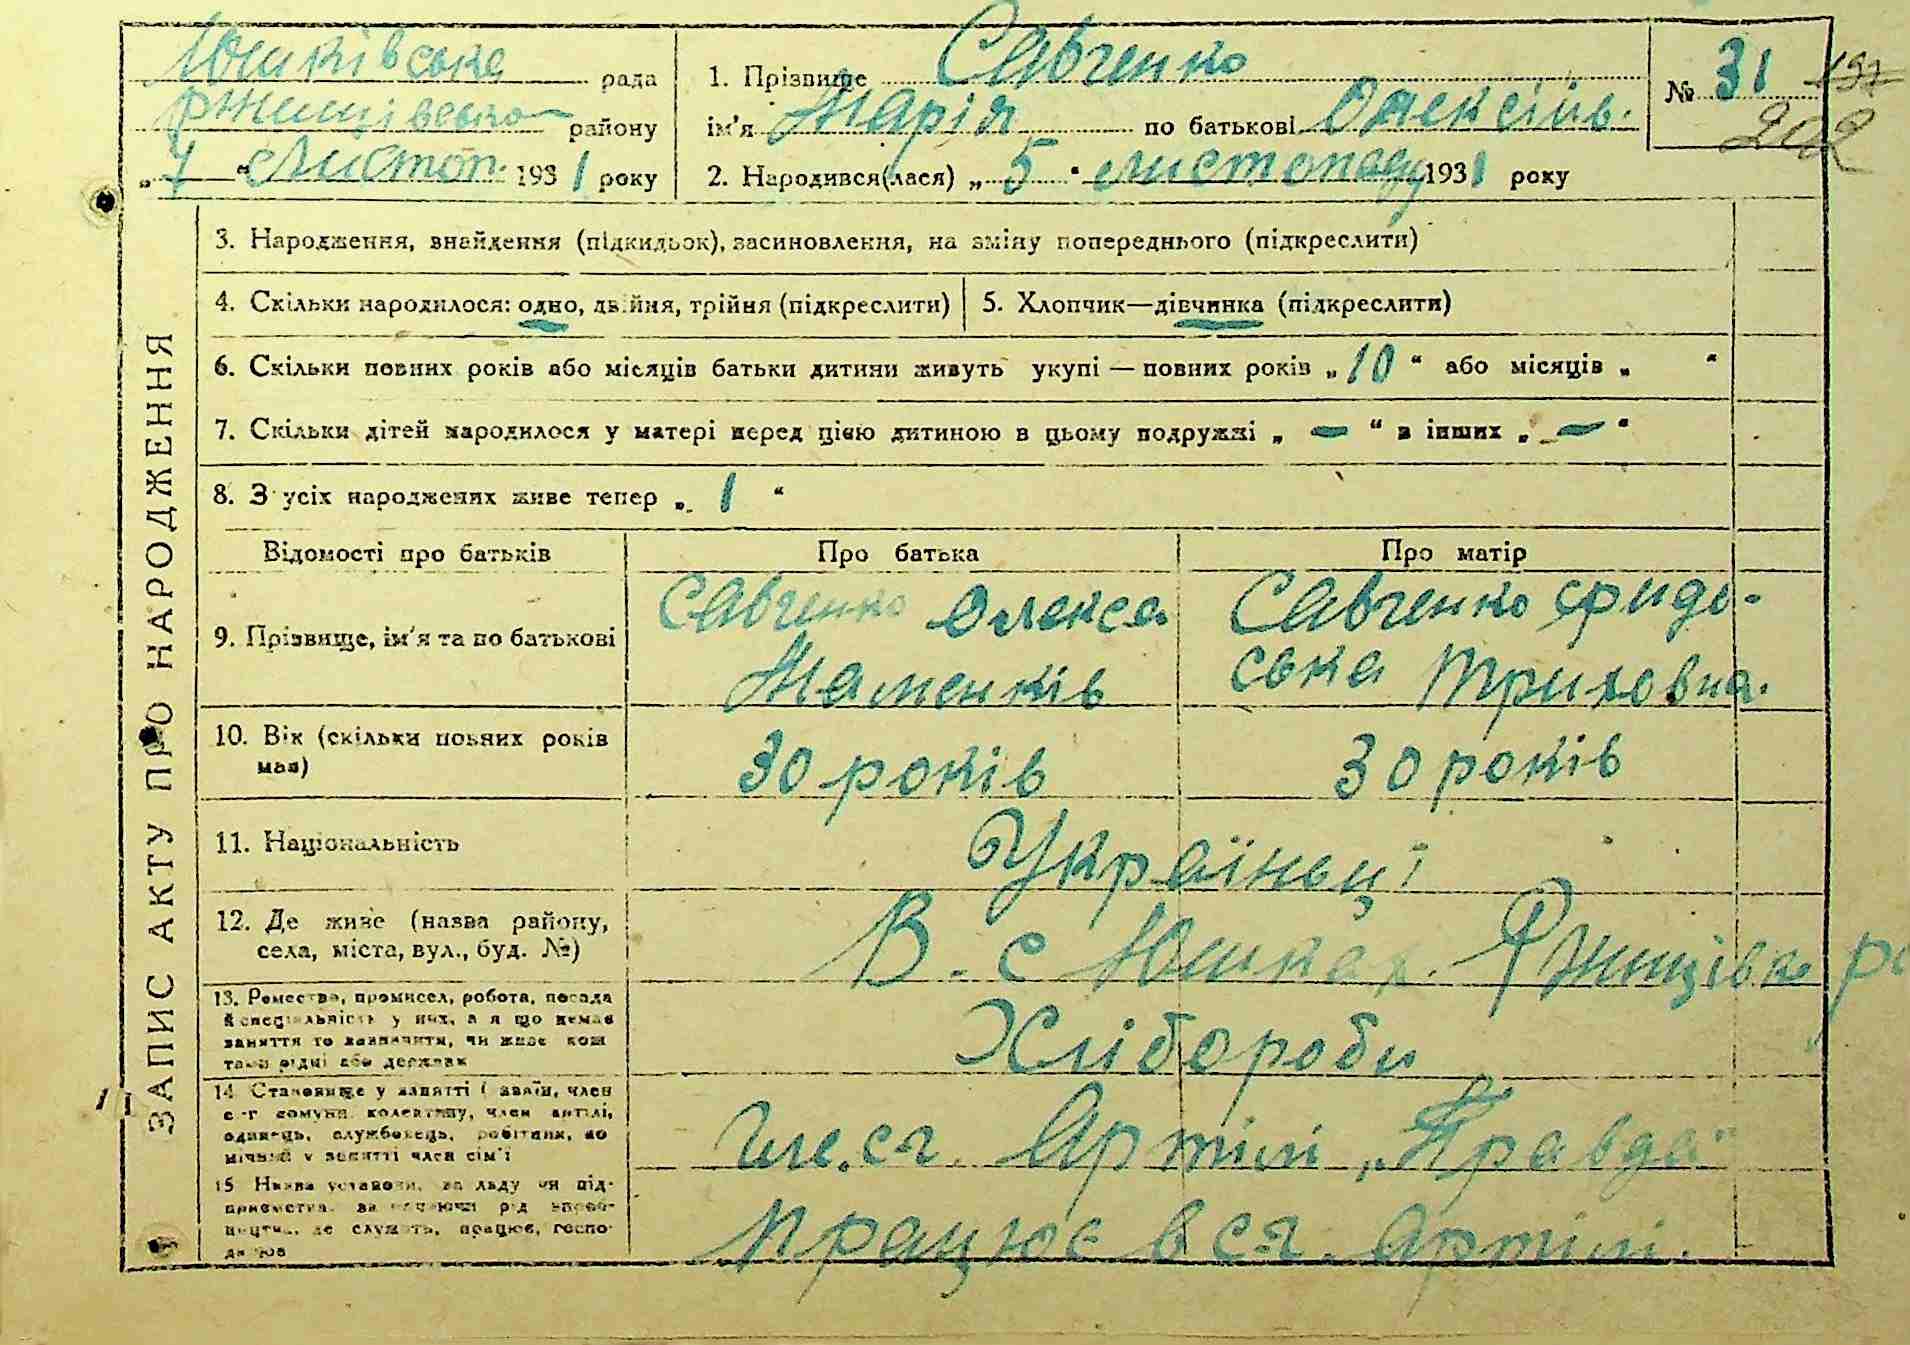 Юшківське рада
Ржищівсько району
„ 7 “ Листоп. 1931 року
1. Прізвище Савченко
ім’я Марія по батькові Олексіїв.
2. Народився(лася) „ 5 “ листопаду 1931 року
№ 31
137
202
ЗАПИС АКТУ ПРО НАРОДЖЕННЯ
3. Народження, внайдення (підкидьок), засиновлення, на зміну попереднього (підкреслити)
4. Скільки народилося: одно, двійня, трійня (підкреслити)
5. Хлопчик—дівчинка (підкреслити)
6. Скільки повних років або місяців батьки дитини живуть укупі — повних років „ 10 “ або місяців „ “
7. Скільки дітей народилося у матері перед цією дитиною в цьому подружжі „ — “ в інших „ — “
8. З усіх народжених живе тепер „ 1 “
Відомості про батьків Про батька Про матір
9. Прізвище, ім’я та по батькові
Савченко Олекса
Савченко
ська
10. Вік (скільки повних років має)
30 років 30 років
11. Національність
Українці
12. Де живе (назва району,
села, міста, вул., буд. №)
В. с Юшках. Ржищівськ р
13. Ремество, промисел, робота, посада
й спеціяльність у них, а я що немає
заняття то зазначити, чи живе кош
тами рідні або держави
Хлібороби
14 Становище у занятті ( хазяїн, член
с-г комуни, колективу, член артілі,
одинець, службовець, робітник, по
мічний у занятті член сім’ї
Чле. с-г. Артілі „Правда“
15 Назва установи, закладу чи під-
приємства, зазначаючи рід вироб-
ництва, де служить, працює, госпо-
дарює
Працює в с-г. артілі.